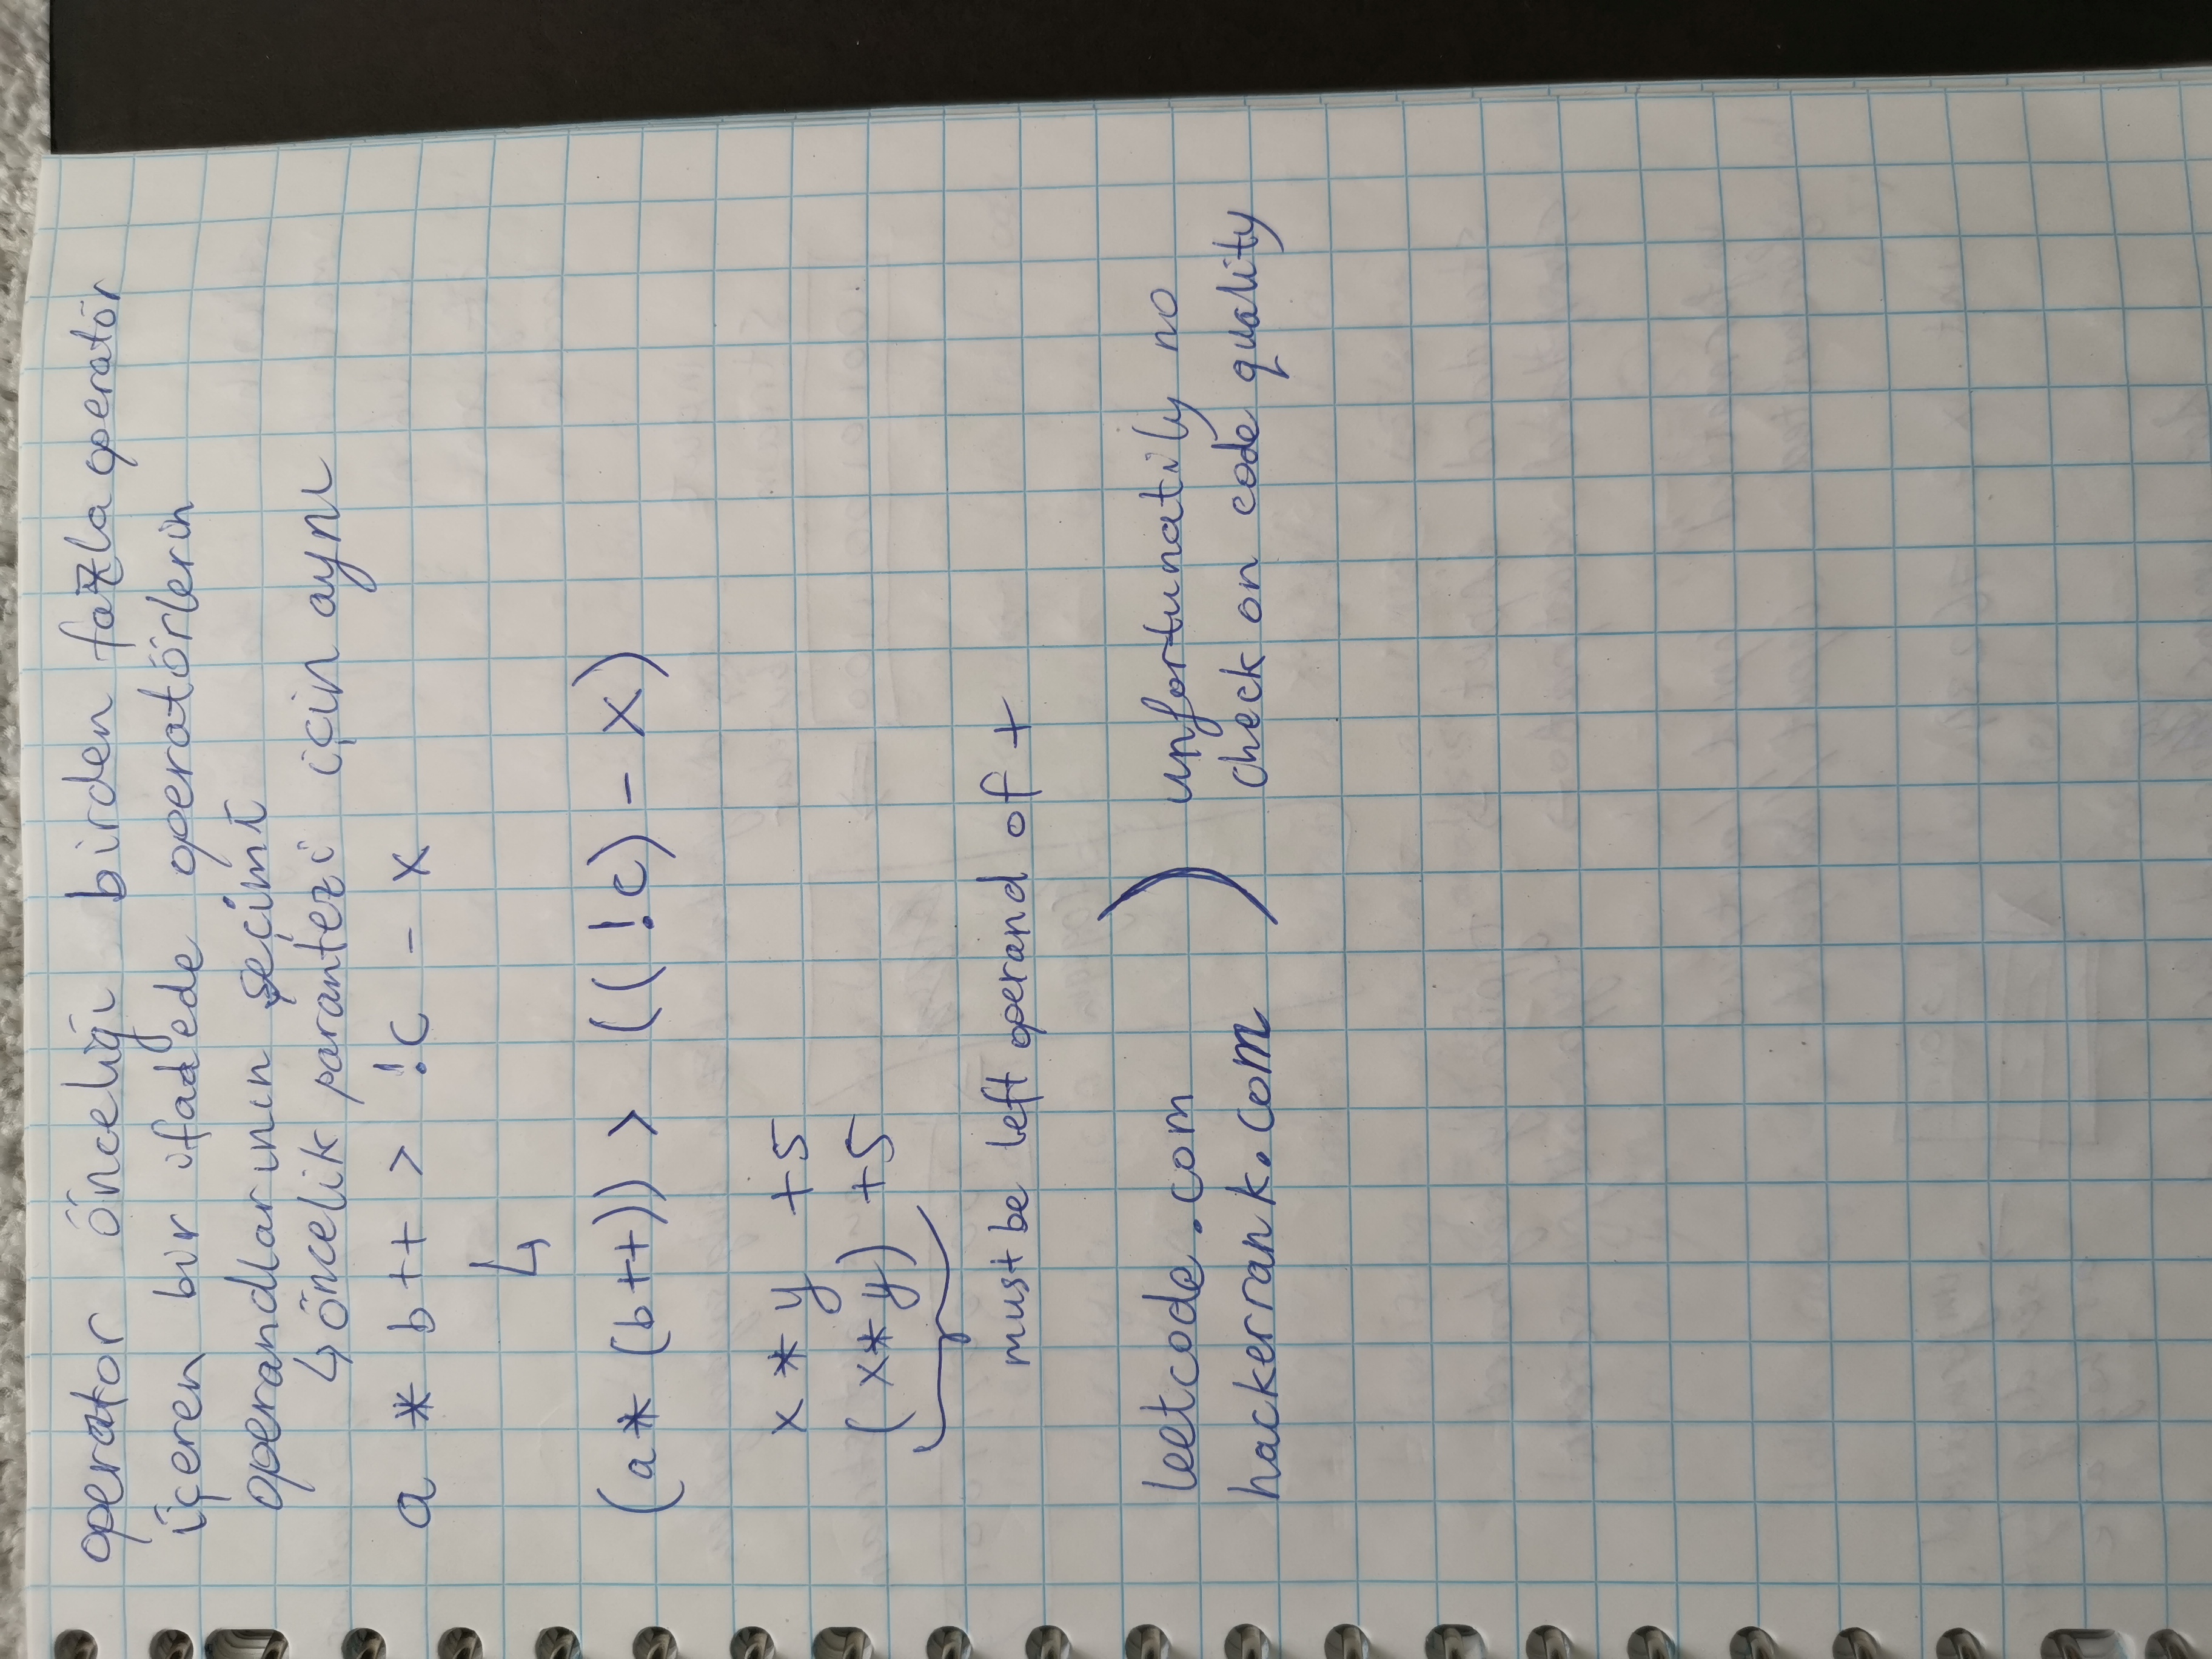 operator önceliği birden fazla operatör
içeren bir ifadede operatörlerin
operandlarının seçimi
↳ öncelik parantezi için aynı
a * b++ > !c - x
↳
(a * (b++)) > ((!c) - x)
x * y +5
(x*y) +5
must be left operand of +
leetcode.com ) unfortunatily no
hackerrank.com check on code quality